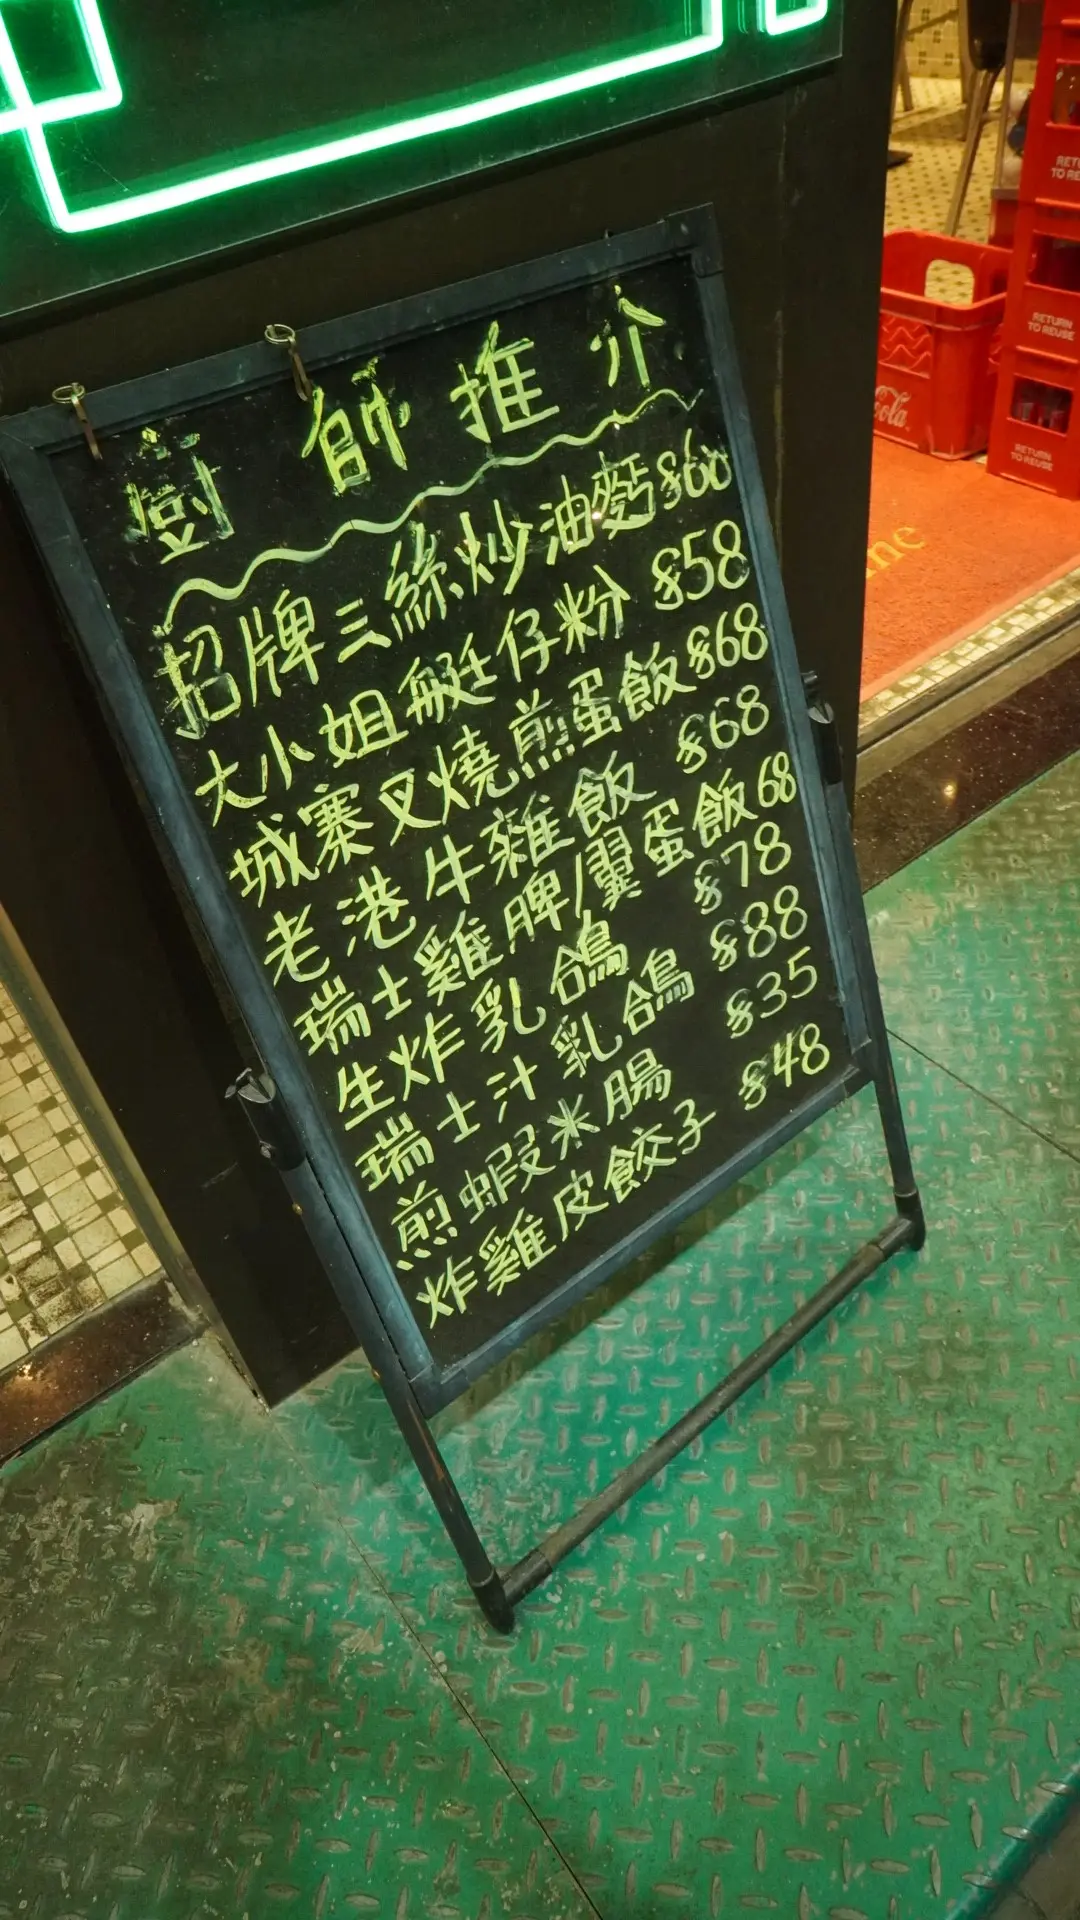 廚師推介
招牌三絲炒油麪 $60
大小姐艇仔粉 $58
城寨叉燒煎蛋飯 $68
老港牛雜飯 $68
瑞士雞脾/翼蛋飯 68
生炸乳鴿 $78
瑞士汁乳鴿 $88
煎蝦米腸 $35
炸雞皮餃子 $48
RETURN
TO REUSE
RETURN
TO REUSE